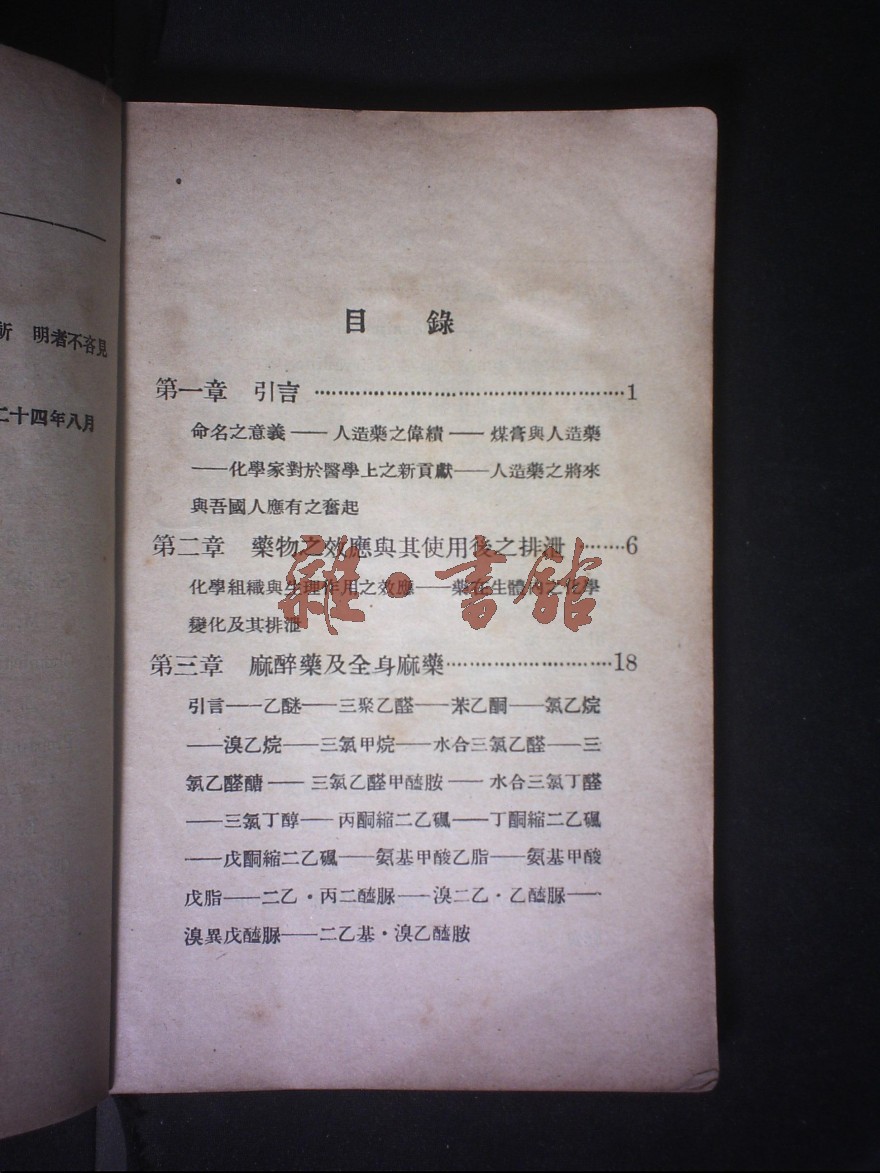 明者不吝見
二十四年八月
目錄
第一章 引言 ……………………………………………1
命名之意義—— 人造藥之偉績—— 煤膏與人造藥
——化學家對於醫學上之新貢獻——人造藥之將來
與吾國人應有之奮起
第二章 藥物之效應與其使用後之排泄 ……6
化學組織與生理作用之效應——藥在生體內之化學
變化及其排泄
第三章 麻醉藥及全身麻藥………………………18
引言——乙醚——三聚乙醛——苯乙酮——氯乙烷
——溴乙烷——三氯甲烷——水合三氯乙醛——三
氯乙醛醣—— 三氯乙醛甲醯胺—— 水合三氯丁醛
——三氯丁醇—— 丙酮縮二乙碸——丁酮縮二乙碸
——戊酮縮二乙碸——氨基甲酸乙脂——氨基甲酸
戊脂——二乙・丙二醯脲——溴二乙・乙醯脲——
溴異戊醯脲——二乙基・溴乙醯胺
雜・書館